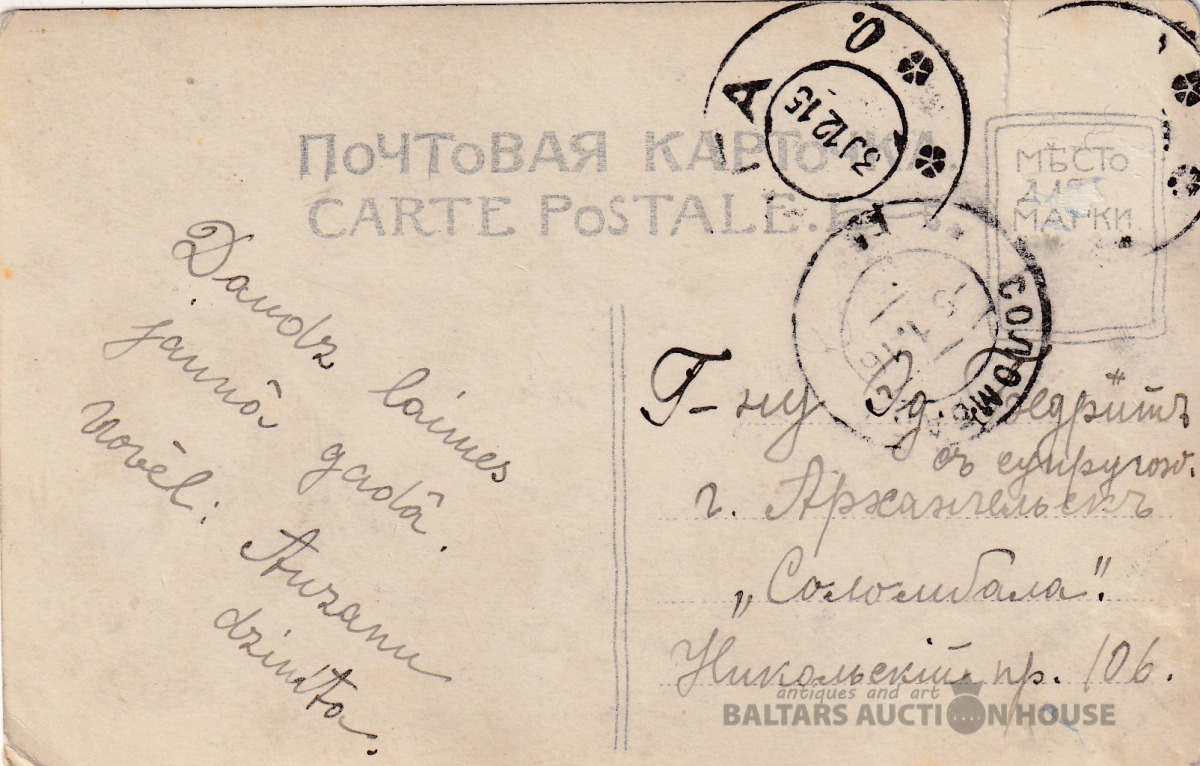 ПОЧТОВАЯ КАРТОЧКА.
CARTE POSTALE.
МѢСТО
ДЛЯ
МАРКИ
31 12 15
СОЛОМБ
Daudz laimes
jaunâ gadâ.
novēl: Auzanu
dzimta.
Г-ну Эд.
съ супругою.
г. Архангельскъ
„Соломбала".
Никольскій пр. 106.
antiques and art
BALTARS AUCTION HOUSE